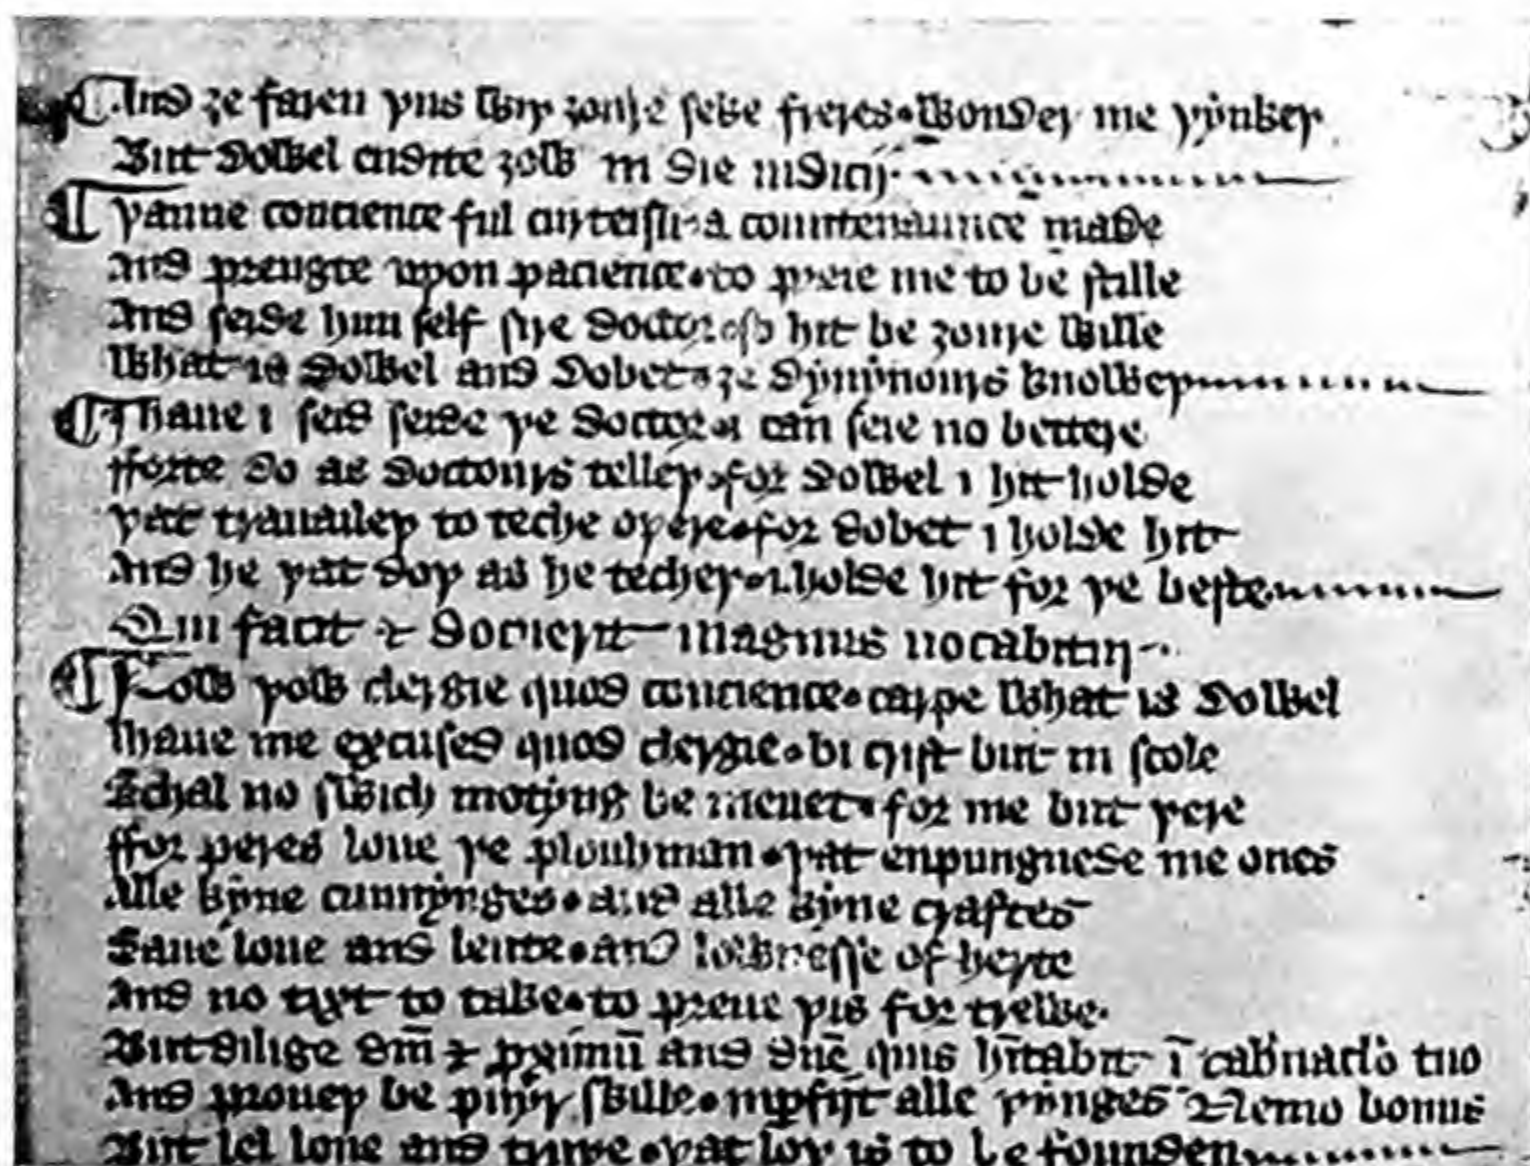 And ȝe faren þus wiþ ȝoure seke freres · wonder me þynkeþ
But dowel endite ȝow in die iudicij
Þanne concience ful curteisli · a countenaunce made
And prengte vpon pacience · to preie me to be stille
And seide him self sire doctor · so hit be ȝoure wille
What is dowel and dobet · ȝe dyuynours knoweþ
I haue i seid seide þe doctor · i can seie no bettere
fforte do as doctours telleþ · for dowel i hit holde
þat trauaileþ to teche oþere · for dobet i holde hit
And he þat doþ as he techeþ · i holde hit for þe beste
Qui facit & docuerit magnus vocabitur
Now þow clergie quod concience · carpe what is dowel
I haue me excused quod clergie · bi crist but in scole
Schal no swich motyng be meuet · for me but þere
ffor peres loue þe plouhman · þat enpungnede me ones
Alle kyne cunnynges · and alle kyne craftes
Saue loue and leute · and lownesse of herte
And no tixt to take · to preue þis for trewe ·
But dilige dm̄ & pximū and dn̄e quis hītabit ī tab̄naclo tuo
And proueþ be puyr skille · inpfijt alle þinges & Nemo bonus
But lel loue and truwe · þat loþ is to be founden